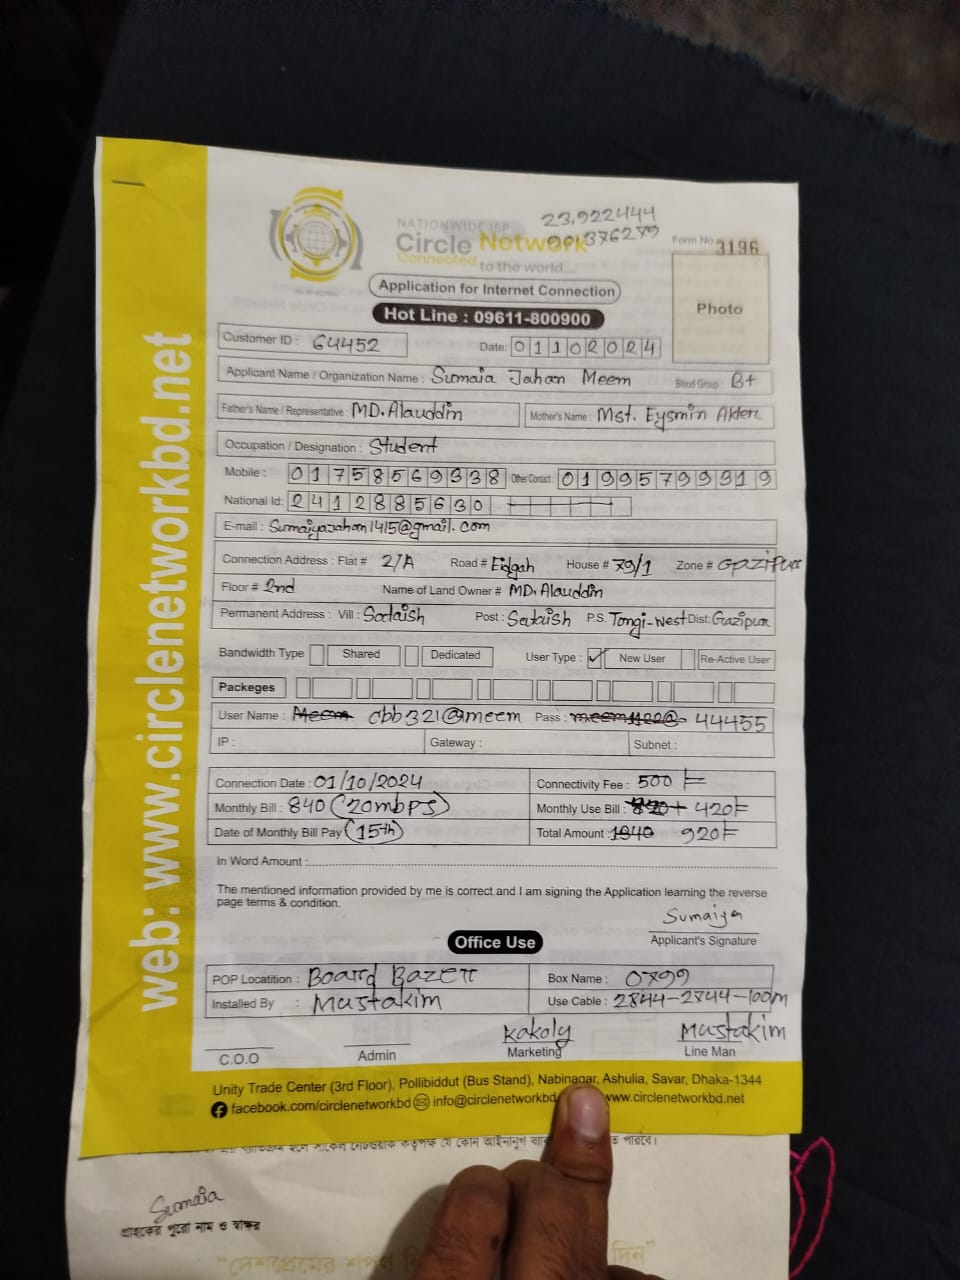 23.922444
90.376279
NATIONWIDE ISP
Circle Network
Connected to the world....
Form No. 3196
Photo
Application for Internet Connection
Hot Line : 09611-800900
Customer ID : 64452
Date: 01102024
Applicant Name / Organization Name : Sumaia Jahan Meem Blood Group B+
Father's Name / Representative : MD. Alauddin Mother's Name : Mst. Eysmin Akter
Occupation / Designation : Student
Mobile : 01758569338 Other Contact : 01995799319
National Id: 2412885630
E-mail : Sumaiyajahan1415@gmail.com
Connection Address : Flat # 2/A Road # Eidgah House # 79/1 Zone # Gazipur
Floor # 2nd Name of Land Owner # MD. Alauddin
Permanent Address : Vill : Sataish Post : Sataish P.S. Tongi-West Dist: Gazipur
Bandwidth Type Shared Dedicated User Type : ✓ New User Re-Active User
Packeges
User Name : Meem cbb321@meem Pass : 44455
IP : Gateway : Subnet :
Connection Date : 01/10/2024 Connectivity Fee : 500
Monthly Bill : 840 (20mbps) Monthly Use Bill : 420
Date of Monthly Bill Pay (15th) Total Amount : 1340 920
In Word Amount :
The mentioned information provided by me is correct and I am signing the Application learning the reverse
page terms & condition.
Sumaiya
Applicant's Signature
Office Use
POP Locatition : Board Bazer Box Name : 0799
Installed By : Mustakim Use Cable : 2844-2744-100m
C.O.O
Admin
Kakoly
Marketing
Mustakim
Line Man
Unity Trade Center (3rd Floor), Pollibiddut (Bus Stand), Nabinagar, Ashulia, Savar, Dhaka-1344
facebook.com/circlenetworkbd info@circlenetworkbd www.circlenetworkbd.net
web: www.circlenetworkbd.net
Sumaia
গ্রাহকের পুরো নাম ও স্বাক্ষর